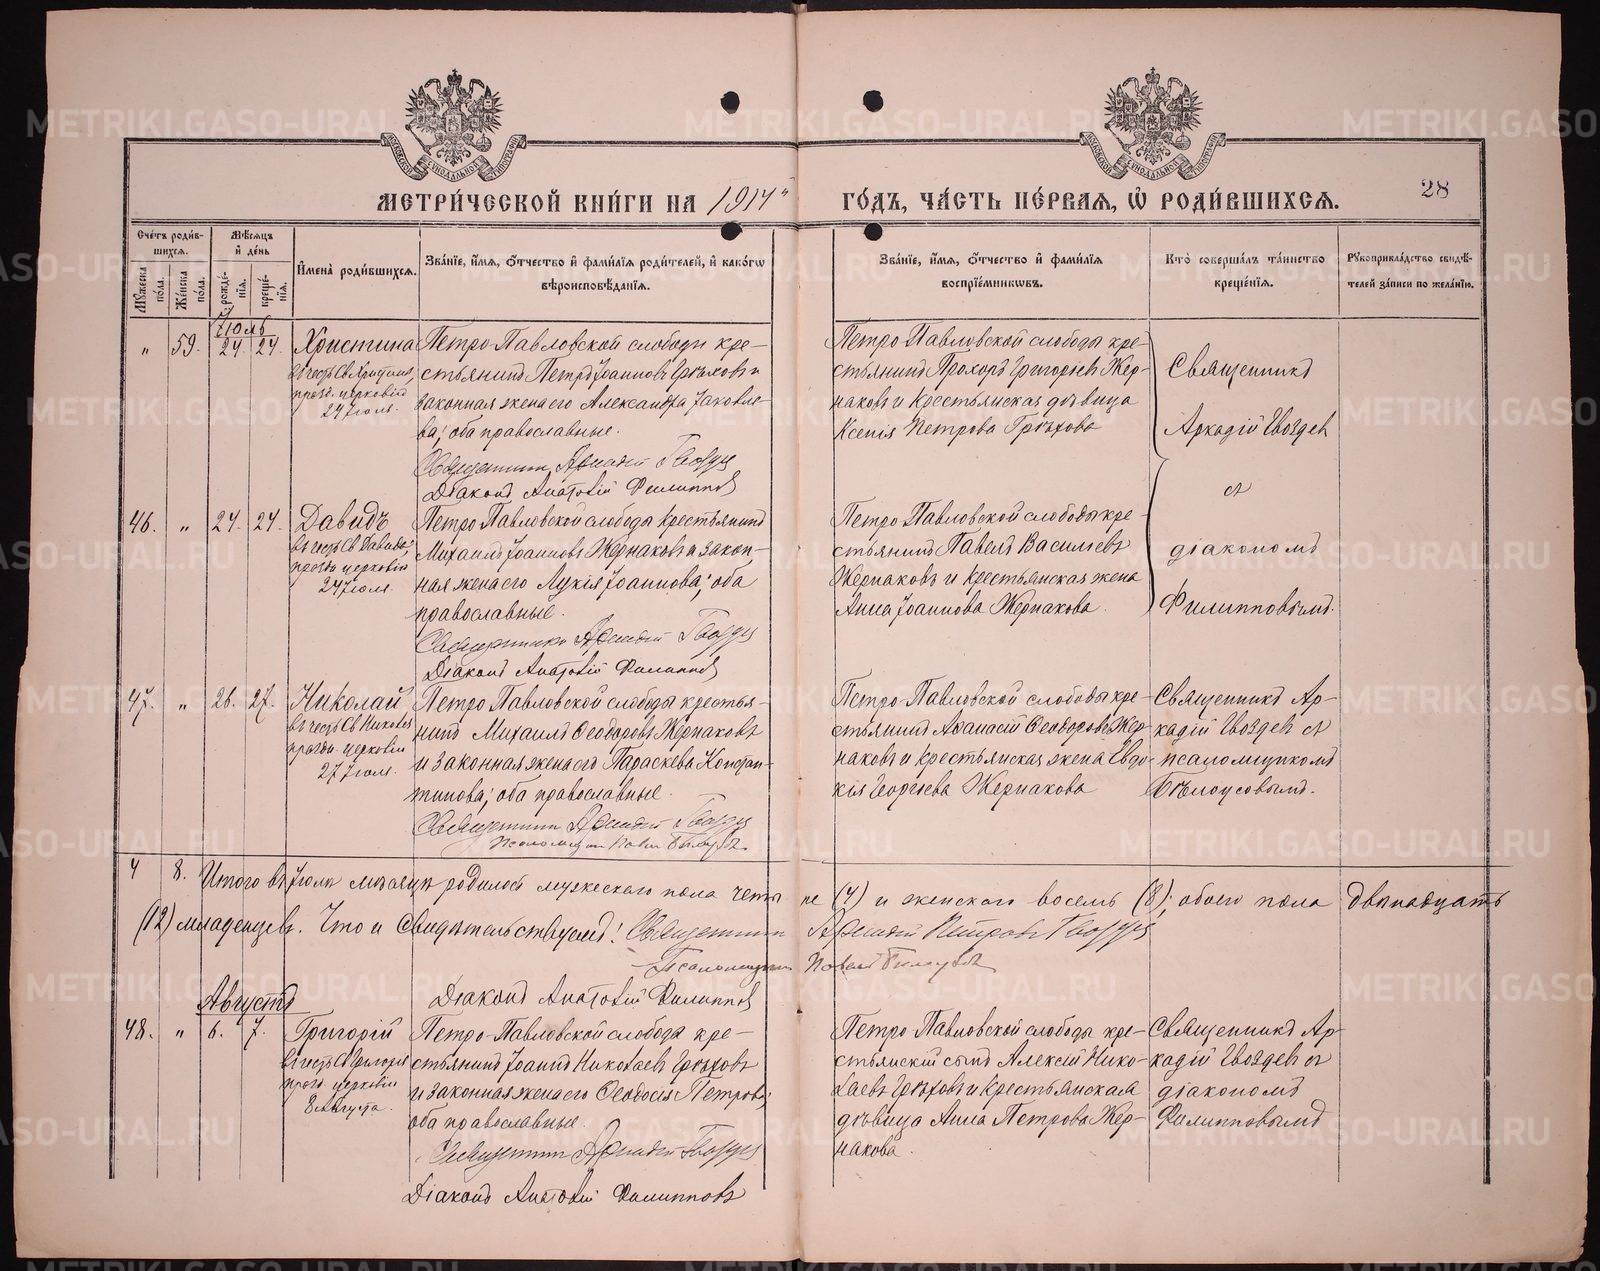 МЕТРИ́ЧЕСКОЙ КНИ́ГИ НА 1914 ГО́ДЪ, ЧА́СТЬ ПЕ́РВАЯ, Ѡ РОДИ́ВШИХСЯ.
28
Сче́тъ роди́в-
шихся.
Мѣ́сяцъ
и҆ де́нь
Му́жеска по́ла.
Же́нска по́ла.
рожде́-
нія.
креще́-
нія.
И҆мена̀ роди́вшихся.
Зва́ніе, и҆́мя, ѻ҆́тчество и҆ фами́лія роди́телей, и҆ како́гѡ
вѣроисповѣ́данія.
Зва́ніе, и҆́мя, ѻ҆́тчество и҆ фами́лія
воспріе́мниковъ.
Кто̀ соверша́лъ та́инство
креще́нія.
Рукоприкла́дство свидѣ́-
телей за́писи по жела́нію.
Іюль
" 59. 24. 24.
Христина
въ честь Св. Христины,
празд. церковію
24 Іюля.
Петро-Павловской слободы кре-
стьянинъ Петръ Іоанновъ Грѣховъ и
законная жена его Александра Іаковле-
ва; оба православные.
Священникъ Аркадій Гвоздевъ
Діаконъ Анатолій Филипповъ
Петро-Павловской слободы кре-
стьянинъ Прохоръ Григорьевъ Жер-
наковъ и крестьянская дѣвица
Ксенія Петрова Грѣхова
Священникъ
Аркадій Гвоздевъ
съ
діакономъ
Филипповымъ.
46. " 24. 24.
Давидъ
въ честь Св. Давида,
празд. церковію
24 Іюля.
Петро-Павловской слободы крестьянинъ
Михаилъ Іоанновъ Жернаковъ и закон-
ная жена его Лукія Іоаннова; оба
православные.
Священникъ Аркадій Гвоздевъ
Діаконъ Анатолій Филипповъ
Петро-Павловской слободы кре-
стьянинъ Павелъ Васильевъ
Жернаковъ и крестьянская жена
Анна Іоаннова Жернакова.
47. " 26. 27.
Николай
въ честь Св. Николая
праздн. церковію
27 Іюля.
Петро-Павловской слободы крестья-
нинъ Михаилъ Ѳеодоровъ Жернаковъ
и законная жена его Параскева Констан-
тинова; оба православные.
Священникъ Аркадій Гвоздевъ
Псаломщикъ Павелъ Бѣлоусовъ
Петро-Павловской слободы кре-
стьянинъ Аѳанасій Ѳеодоровъ Жер-
наковъ и крестьянская жена Евдо-
кія Георгіева Жернакова
Священникъ Ар-
кадій Гвоздевъ съ
псаломщикомъ
Бѣлоусовымъ.
4 8. Итого въ Іюлѣ мѣсяцѣ родилось мужескаго пола четыре (4) и женскаго восемь (8); обоего пола двѣнадцать
(12) младенцевъ. Что и Свидѣтельствуемъ! Священникъ Аркадій Петровъ Гвоздевъ
Псаломщикъ Павелъ Бѣлоусовъ
Діаконъ Анатолій Филипповъ
Августъ
48. " 6. 7.
Григорій
въ честь Св. Григорія
празд. церковію
8 Августа.
Петро-Павловской слободы кре-
стьянинъ Іоаннъ Николаевъ Грѣховъ
и законная жена его Ѳеодосія Петрова;
оба православные.
Священникъ Аркадій Гвоздевъ
Діаконъ Анатолій Филипповъ
Петро-Павловской слободы кре-
стьянскій сынъ Алексій Нико-
лаевъ Грѣховъ и крестьянская
дѣвица Анна Петрова Жер-
накова.
Священникъ Ар-
кадій Гвоздевъ съ
діакономъ
Филипповымъ
METRIKI.GASO-URAL.RU